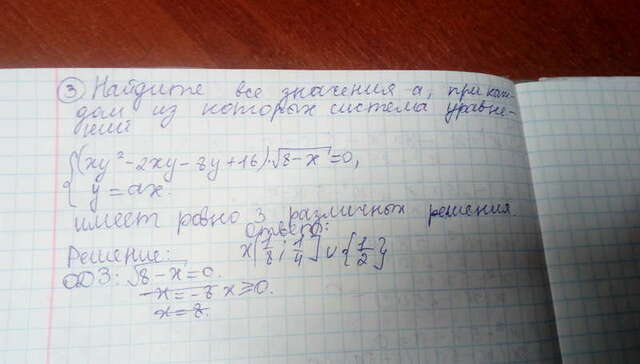 ③ Найдите все значения a, при каж-
дом из которых система уравне-
ний
{(xy²-2xy-8y+16)·√8-x=0,
y=ax.
имеет ровно 3 различных решения.
Ответ:
Решение: x[1/8; 1/4] ∪ {1/2}
ОДЗ: √8-x=0.
-x=-8 x≥0.
x=8.